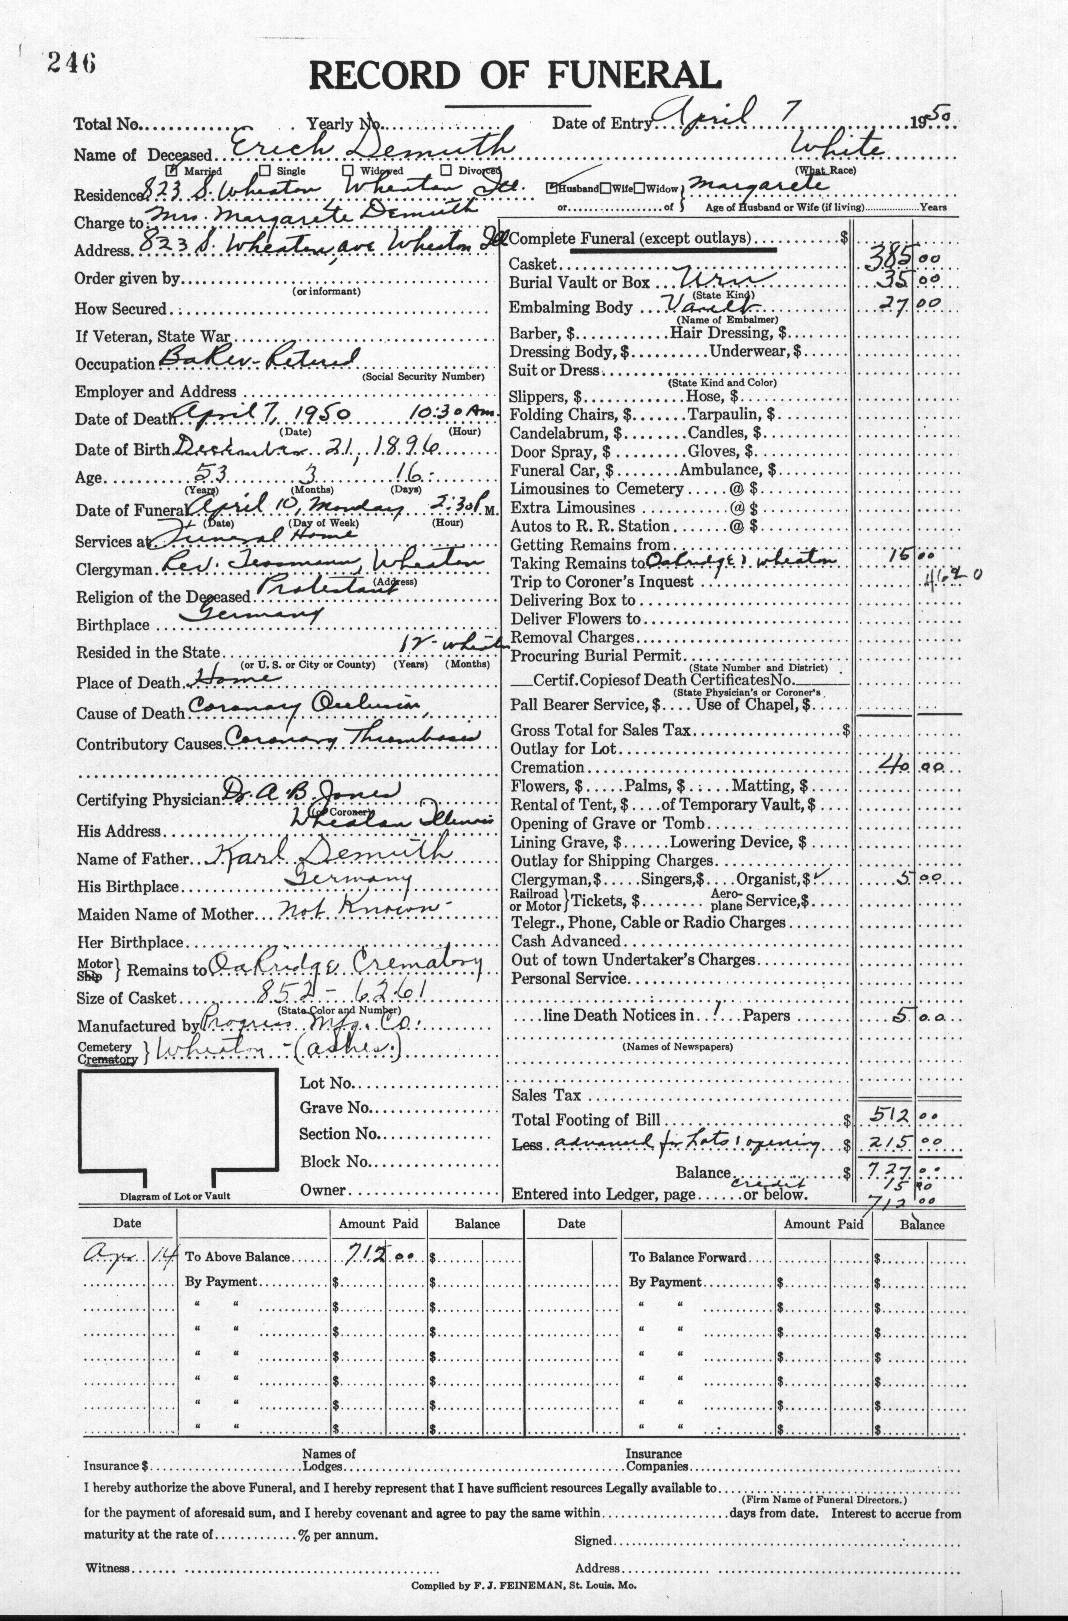 246
RECORD OF FUNERAL
Total No. Yearly No. Date of Entry April 7 1950
Name of Deceased Erich Demuth White
Married Single Widowed Divorced (What Race)
Residence 823 S. Wheaton Wheaton Ill. Husband Wife Widow } Margarete
or of } Age of Husband or Wife (if living) Years
Charge to Mrs. Margarete Demuth
Address 823 S. Wheaton, ave Wheaton Ill
Order given by
(or informant)
How Secured
If Veteran, State War
Occupation Baker - Retired
(Social Security Number)
Employer and Address
Date of Death April 7, 1950 10:30 Am.
(Date) (Hour)
Date of Birth December 21, 1896
Age 53 3 16
(Years) (Months) (Days)
Date of Funeral April 10, Monday 2:30 P M.
(Date) (Day of Week) (Hour)
Services at Funeral Home
Clergyman Rev. Wheaton
(Address)
Religion of the Deceased Protestant
Birthplace Germany
Resided in the State 12 - Wheaton
(or U. S. or City or County) (Years) (Months)
Place of Death Home
Cause of Death Coronary Occlusion,
Contributory Causes Coronary Thrombosis
Certifying Physician Dr. A. B. Jones
(or Coroner)
His Address Wheaton Illinois
Name of Father Karl Demuth
His Birthplace Germany
Maiden Name of Mother not Known -
Her Birthplace
Motor
Ship } Remains to Oakridge Crematory
Size of Casket 852 - 6261
(State Color and Number)
Manufactured by Progress Mfg. Co.
Cemetery
Crematory } Wheaton - (ashes.)
Lot No.
Grave No.
Section No.
Block No.
Owner
Diagram of Lot or Vault
Complete Funeral (except outlays) $
Casket 385 00
Burial Vault or Box Urn 35 00
(State Kind)
Embalming Body 27 00
(Name of Embalmer)
Barber, $ Hair Dressing, $
Dressing Body, $ Underwear, $
Suit or Dress
(State Kind and Color)
Slippers, $ Hose, $
Folding Chairs, $ Tarpaulin, $
Candelabrum, $ Candles, $
Door Spray, $ Gloves, $
Funeral Car, $ Ambulance, $
Limousines to Cemetery @ $
Extra Limousines @ $
Autos to R. R. Station @ $
Getting Remains from
Taking Remains to Oakridge & Wheaton 15 00
Trip to Coroner's Inquest
Delivering Box to
Deliver Flowers to
Removal Charges
Procuring Burial Permit
(State Number and District)
Certif. Copies of Death Certificates No.
(State Physician's or Coroner's
Pall Bearer Service, $ Use of Chapel, $
Gross Total for Sales Tax $
Outlay for Lot
Cremation 40 00
Flowers, $ Palms, $ Matting, $
Rental of Tent, $ of Temporary Vault, $
Opening of Grave or Tomb
Lining Grave, $ Lowering Device, $
Outlay for Shipping Charges
Clergyman, $ Singers, $ Organist, $ ✓ 5 00
Railroad
or Motor } Tickets, $ Aero-
plane Service, $
Telegr., Phone, Cable or Radio Charges
Cash Advanced
Out of town Undertaker's Charges
Personal Service
line Death Notices in 1 Papers 5 00
(Names of Newspapers)
Sales Tax
Total Footing of Bill $ 512 00
Less advanced for Lots & opening $ 215 00
Balance $ 727 00
credit 15 00
Entered into Ledger, page or below. 712 00
Date Amount Paid Balance Date Amount Paid Balance
Apr. 14 To Above Balance 712 00 $ To Balance Forward $
By Payment $ $ By Payment $ $
" " $ $ " " $ $
" " $ $ " " $ $
" " $ $ " " $ $
" " $ $ " " $ $
" " $ $ " " $ $
" " $ $ " " $ $
Insurance $ Names of Lodges Insurance Companies
I hereby authorize the above Funeral, and I hereby represent that I have sufficient resources Legally available to
(Firm Name of Funeral Directors.)
for the payment of aforesaid sum, and I hereby covenant and agree to pay the same within days from date. Interest to accrue from
maturity at the rate of % per annum.
Signed
Witness Address
Compiled by F. J. FEINEMAN, St. Louis, Mo.